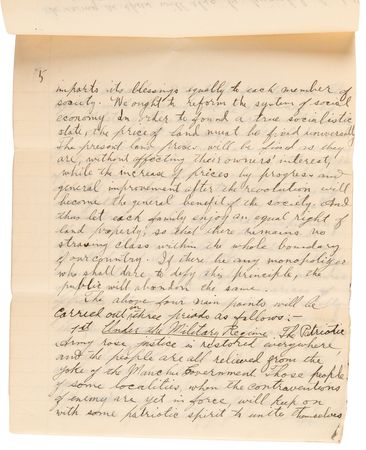 5
imparts its blessings equally to each member of
society. We ought to reform the system of social
economy. In order to found a true socialistic
state, the price of land must be fixed universally.
The present land prices will be fixed as they
are, without affecting their owners' interest,
while the increase of prices by progress and
general improvement after the revolution will
become the general benefit of the society. And
thus let each family enjoy an equal right of
land property, so that there remains no
starving class within the whole boundary
of our country. If there be any monopolist
who shall dare to defy this principle, the
public will abandon the same.
The above four main points will be
carried out in three periods as follows:-
1st Under the Military Regime. The Patriotic
Army rose, justice is restored everywhere,
and the people are all relieved from the
yoke of the Manchu Government. Those people
of some localities, when the contraventions
of enemy are yet in force, will keep on
with some patriotic spirit to unite themselves